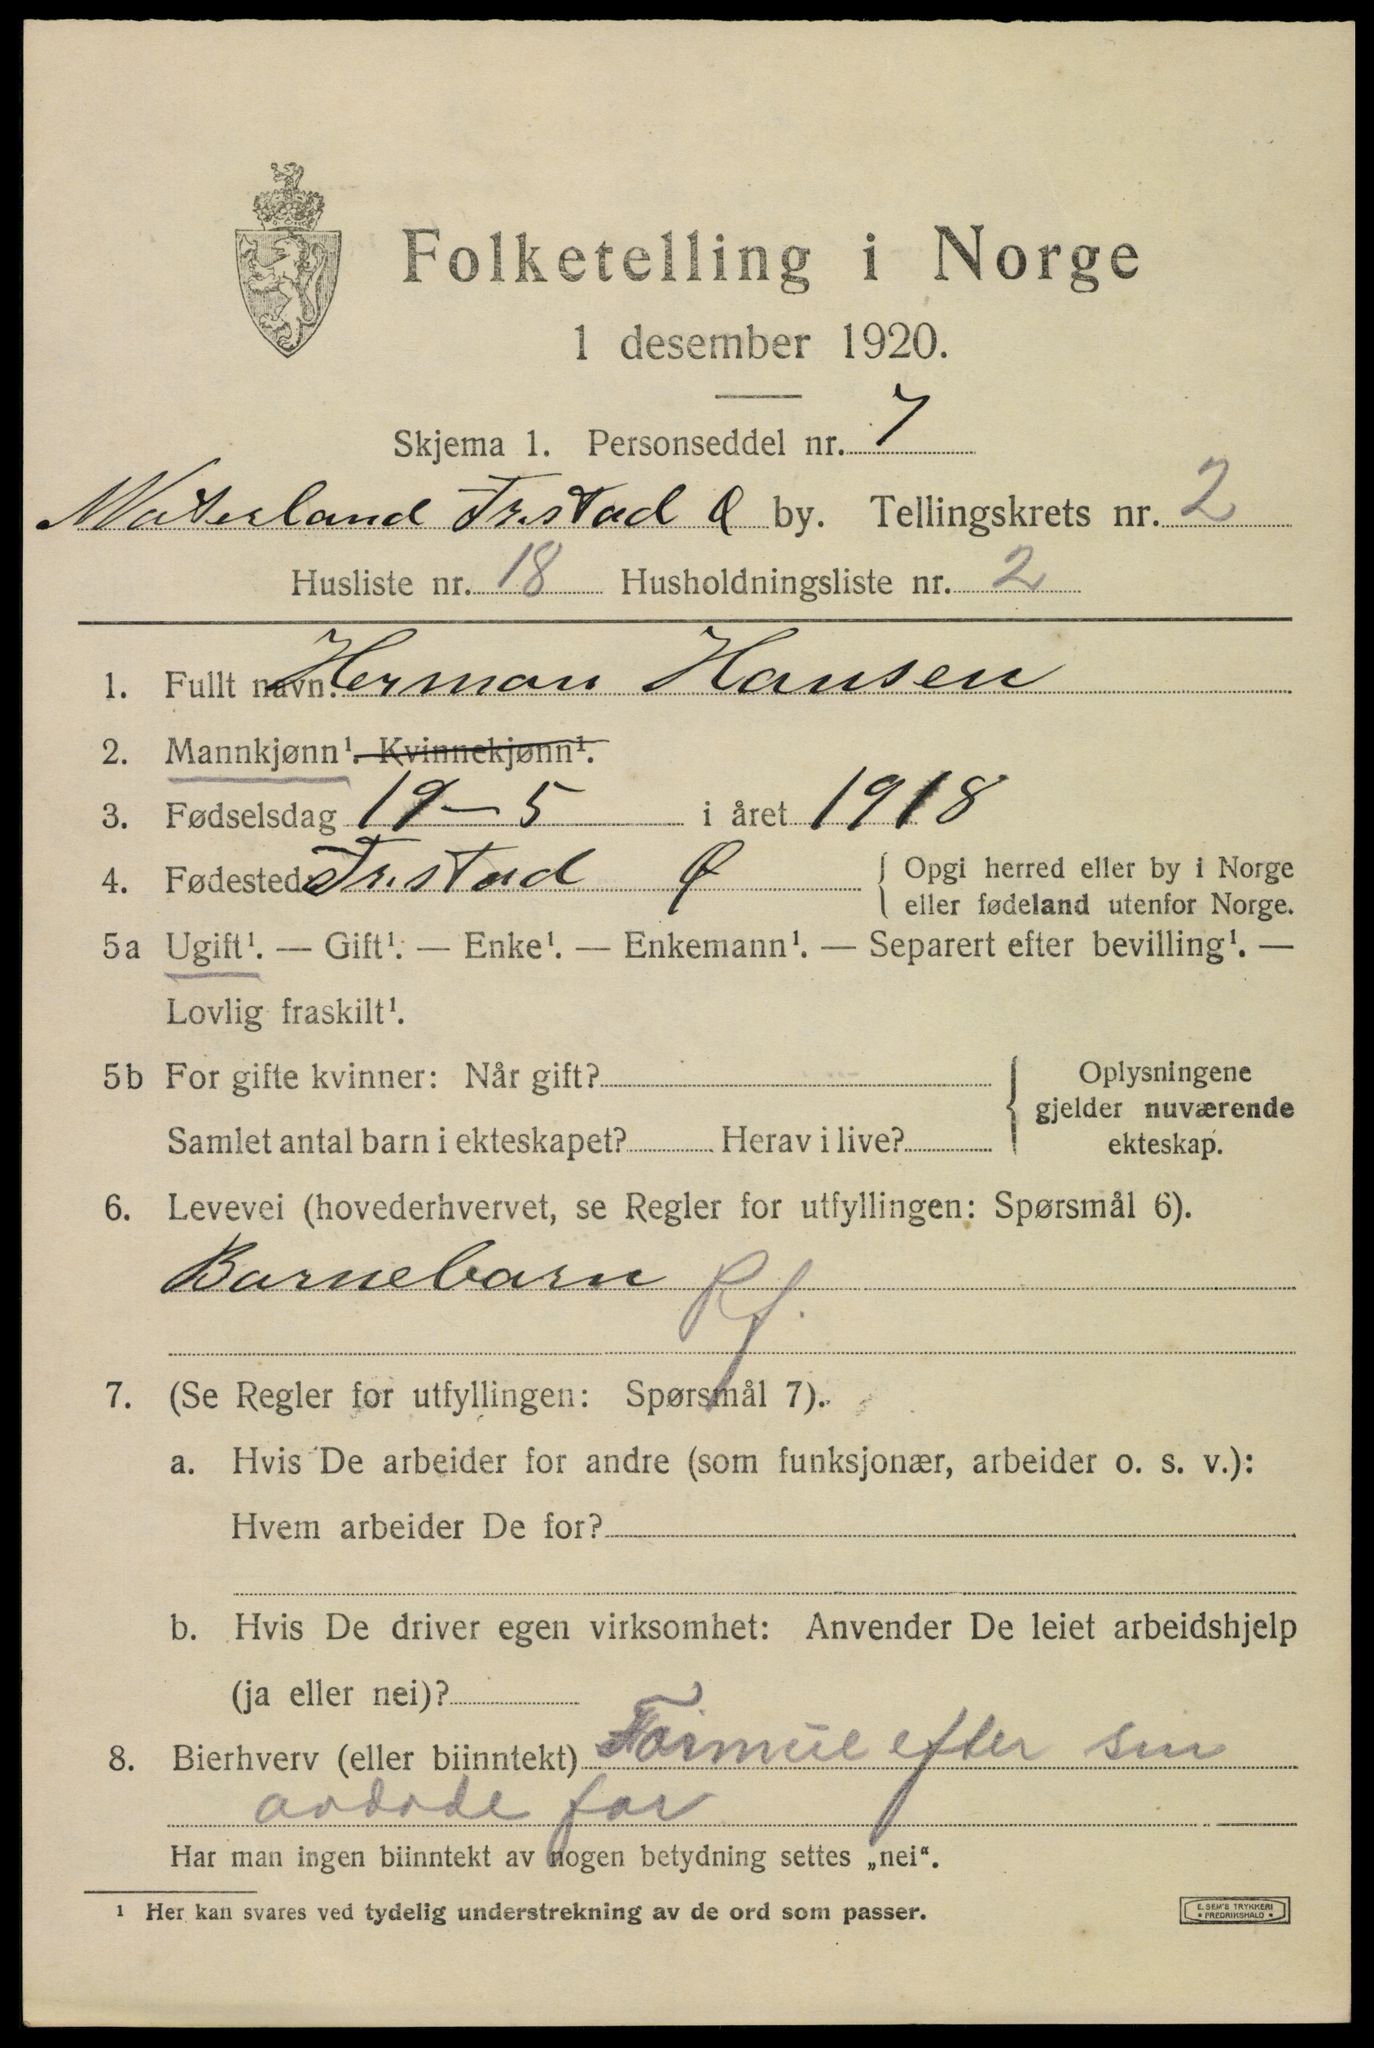 Folketelling i Norge
1 desember 1920.
Skjema 1. Personseddel nr. 7
Materland Fr.stad Ø by. Tellingskrets nr. 2
Husliste nr. 18 Husholdningsliste nr. 2
1. Fullt navn: Herman Hansen
2. Mannkjønn¹. Kvinnekjønn¹.
3. Fødselsdag 19-5 i året 1918
4. Fødested Fr.stad Ø { Opgi herred eller by i Norge
eller fødeland utenfor Norge.
5a Ugift¹. — Gift¹. — Enke¹. — Enkemann¹. — Separert efter bevilling¹. —
Lovlig fraskilt¹.
5b For gifte kvinner: Når gift?
Samlet antal barn i ekteskapet? Herav i live?
{ Oplysningene
gjelder nuværende
ekteskap.
6. Levevei (hovederhvervet, se Regler for utfyllingen: Spørsmål 6).
Barnebarn Rf.
7. (Se Regler for utfyllingen: Spørsmål 7).
a. Hvis De arbeider for andre (som funksjonær, arbeider o. s. v.):
Hvem arbeider De for?
b. Hvis De driver egen virksomhet: Anvender De leiet arbeidshjelp
(ja eller nei)?
8. Bierhverv (eller biinntekt) Formue efter sin
avdøde far
Har man ingen biinntekt av nogen betydning settes „nei".
¹ Her kan svares ved tydelig understrekning av de ord som passer.
E. SEM'S TRYKKERI
• FREDRIKSHALD •